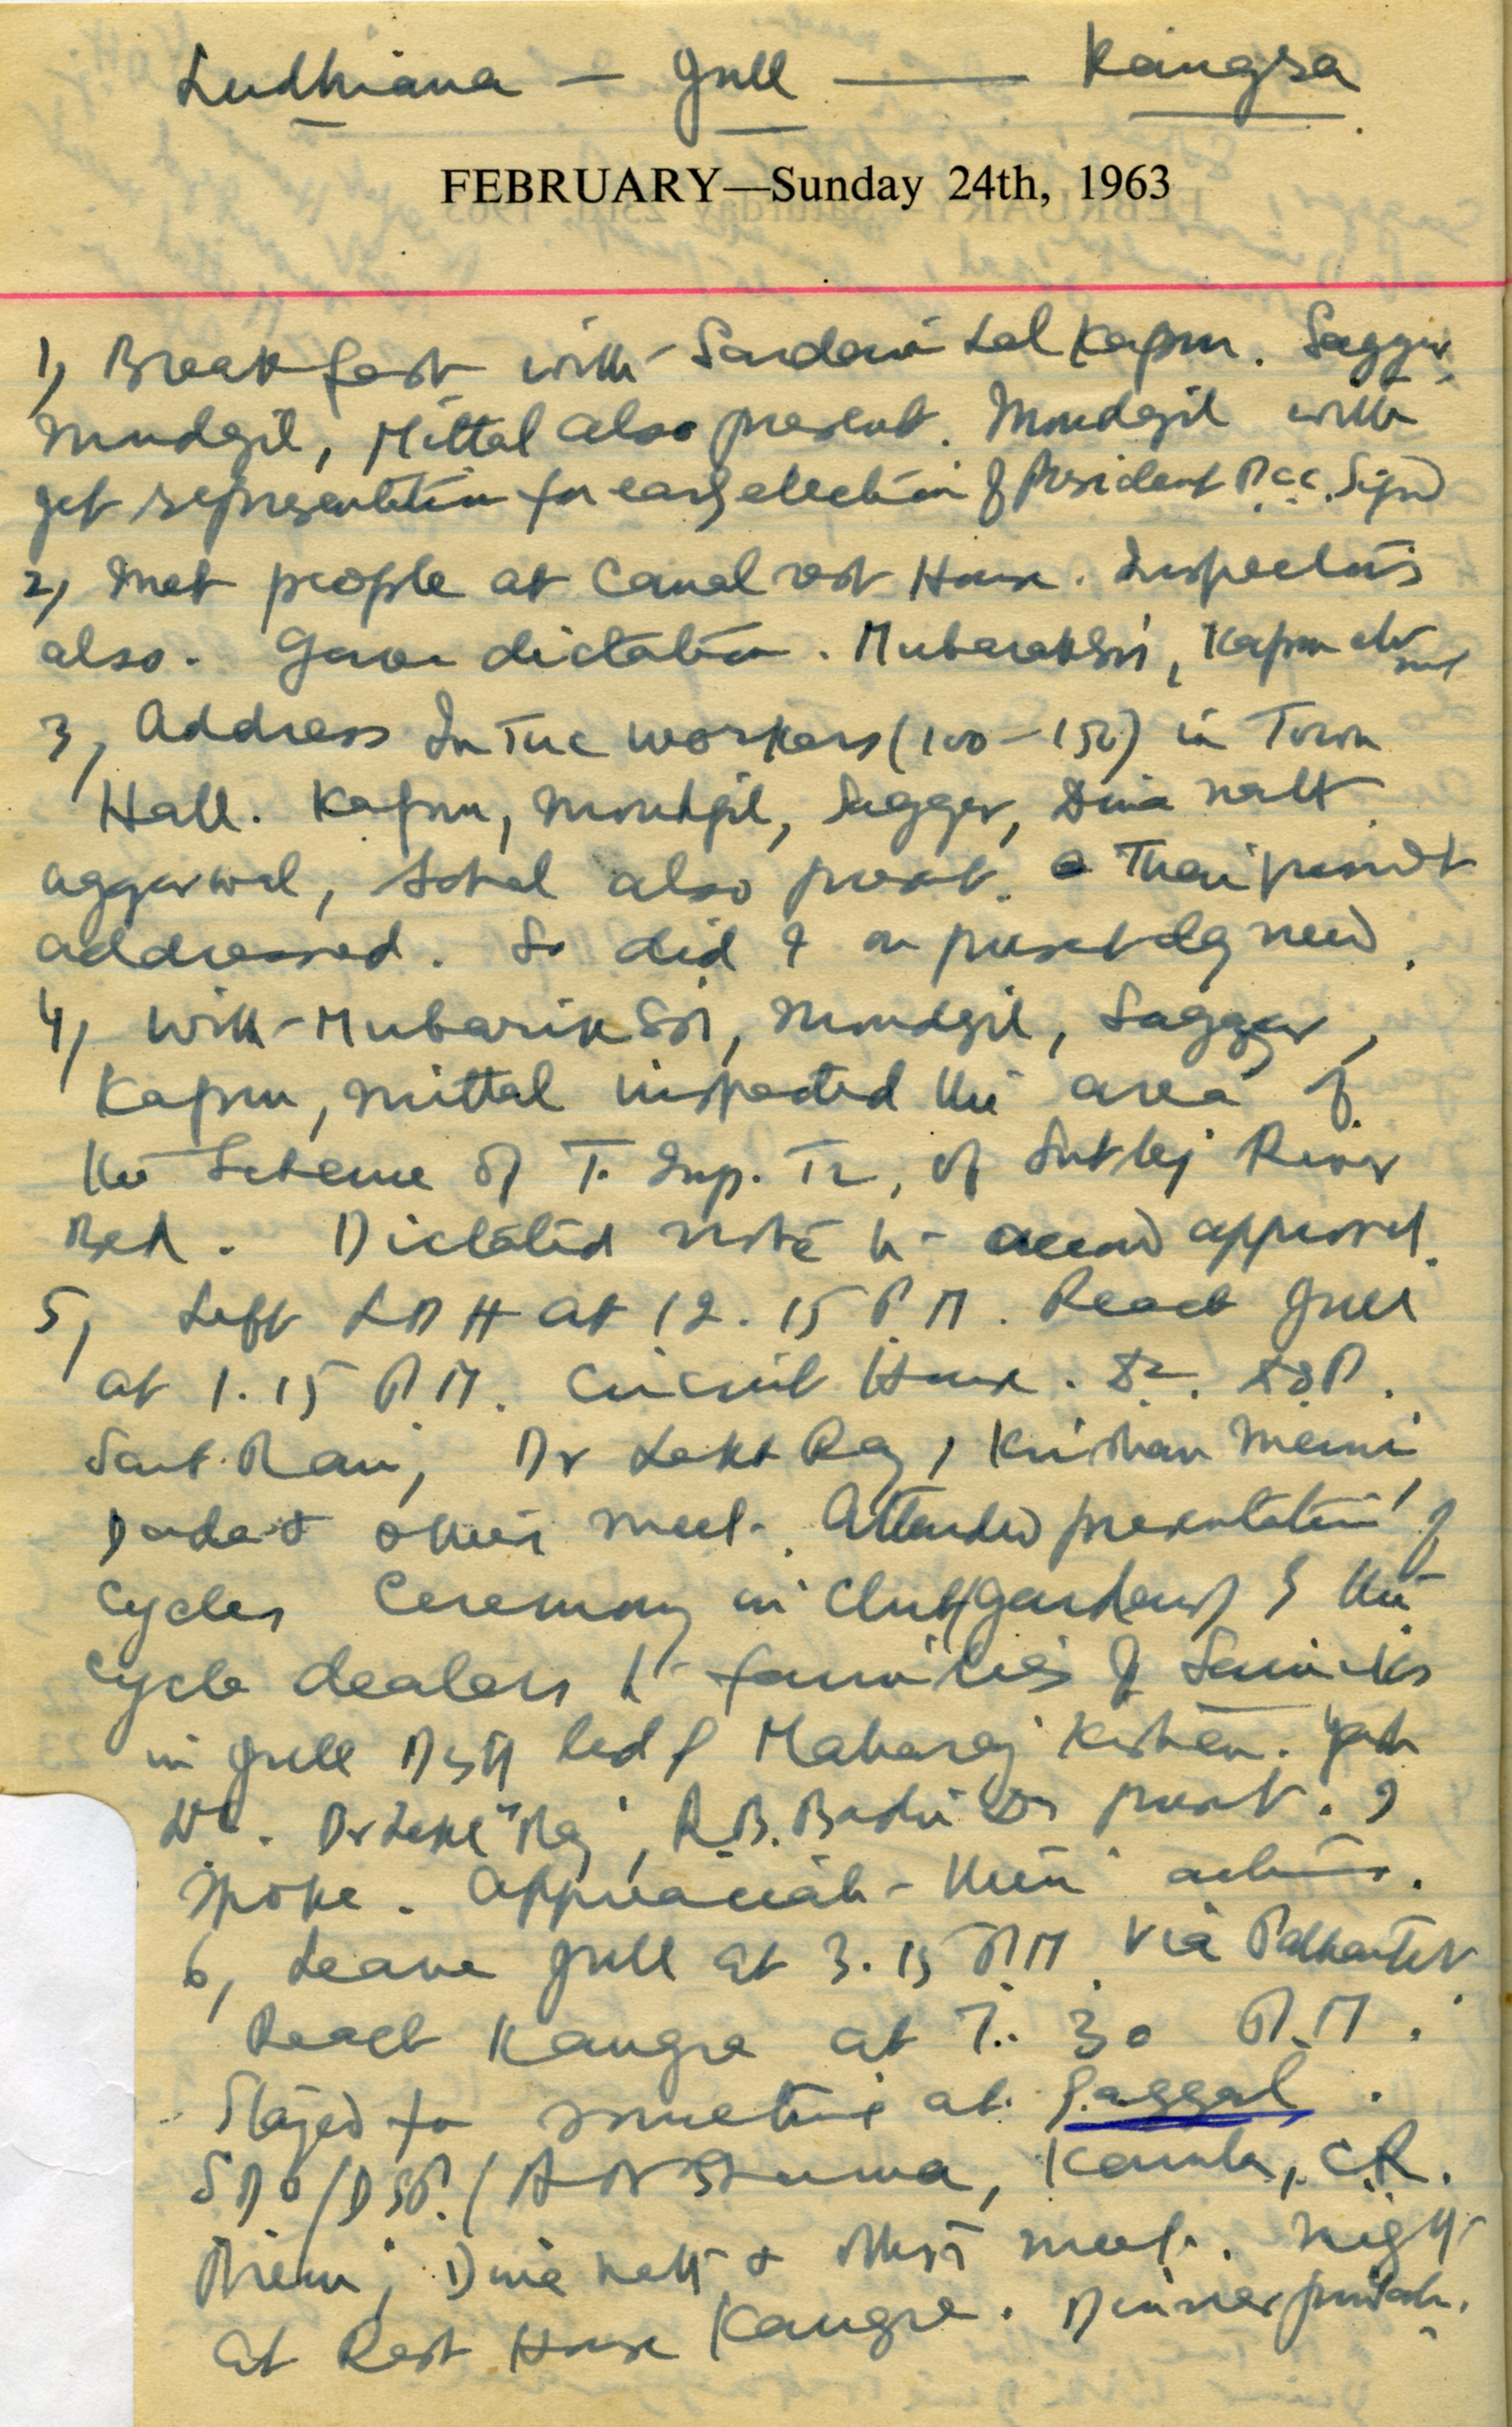 Ludhiana — Jull — Kangra
FEBRUARY—Sunday 24th, 1963
1, Breakfast with Sardari Lal Kapur. Saggar,
Mudgil, Mittal also present. Moudgil will
get representation for early election of President Pcc. Signd
2, Met people at Canal rest House. Inspectors
also. Gave dictation. Mubarak Sn, Kapur also
3, Address InTuc workers (100-150) in Town
Hall. Kapur, Moudgil, Saggar, Dina Nath
Aggarwal, Sohal also present.
addressed. So did I on present day need.
4, With Mubarik Sn, Moudgil, Saggar,
Kapur, Mittal inspected the area of
the Scheme of T. Imp. Tr, of Sutlej River
Bed. Dictated note to accord approval.
5, Left LDH at 12.15 P.M. Reach Jull
at 1.15 P.M. Circuit House. DSP.
Sant Ram, Dr Lekh Raj, Krishan
& others meet. Attended presentation of
cycles Ceremony in Club gardens by the
cycle dealers to families of Jawans
in Jull Distt led by Maharaj Kishen. Yash
Dr Lekh Raj, R.B. Badri Ds present. I
spoke. Appreciate their action.
6, Leave Jull at 3.15 P.M. via Pathankot.
Reach Kangra at 7.30 P.M.
Stayed for sometime at Gaggal.
SDO/DSP/ Sharma, Kamla, C.R.
Premi, Dina Nath & others meet. Night
at Rest House Kangra. Dinner private.